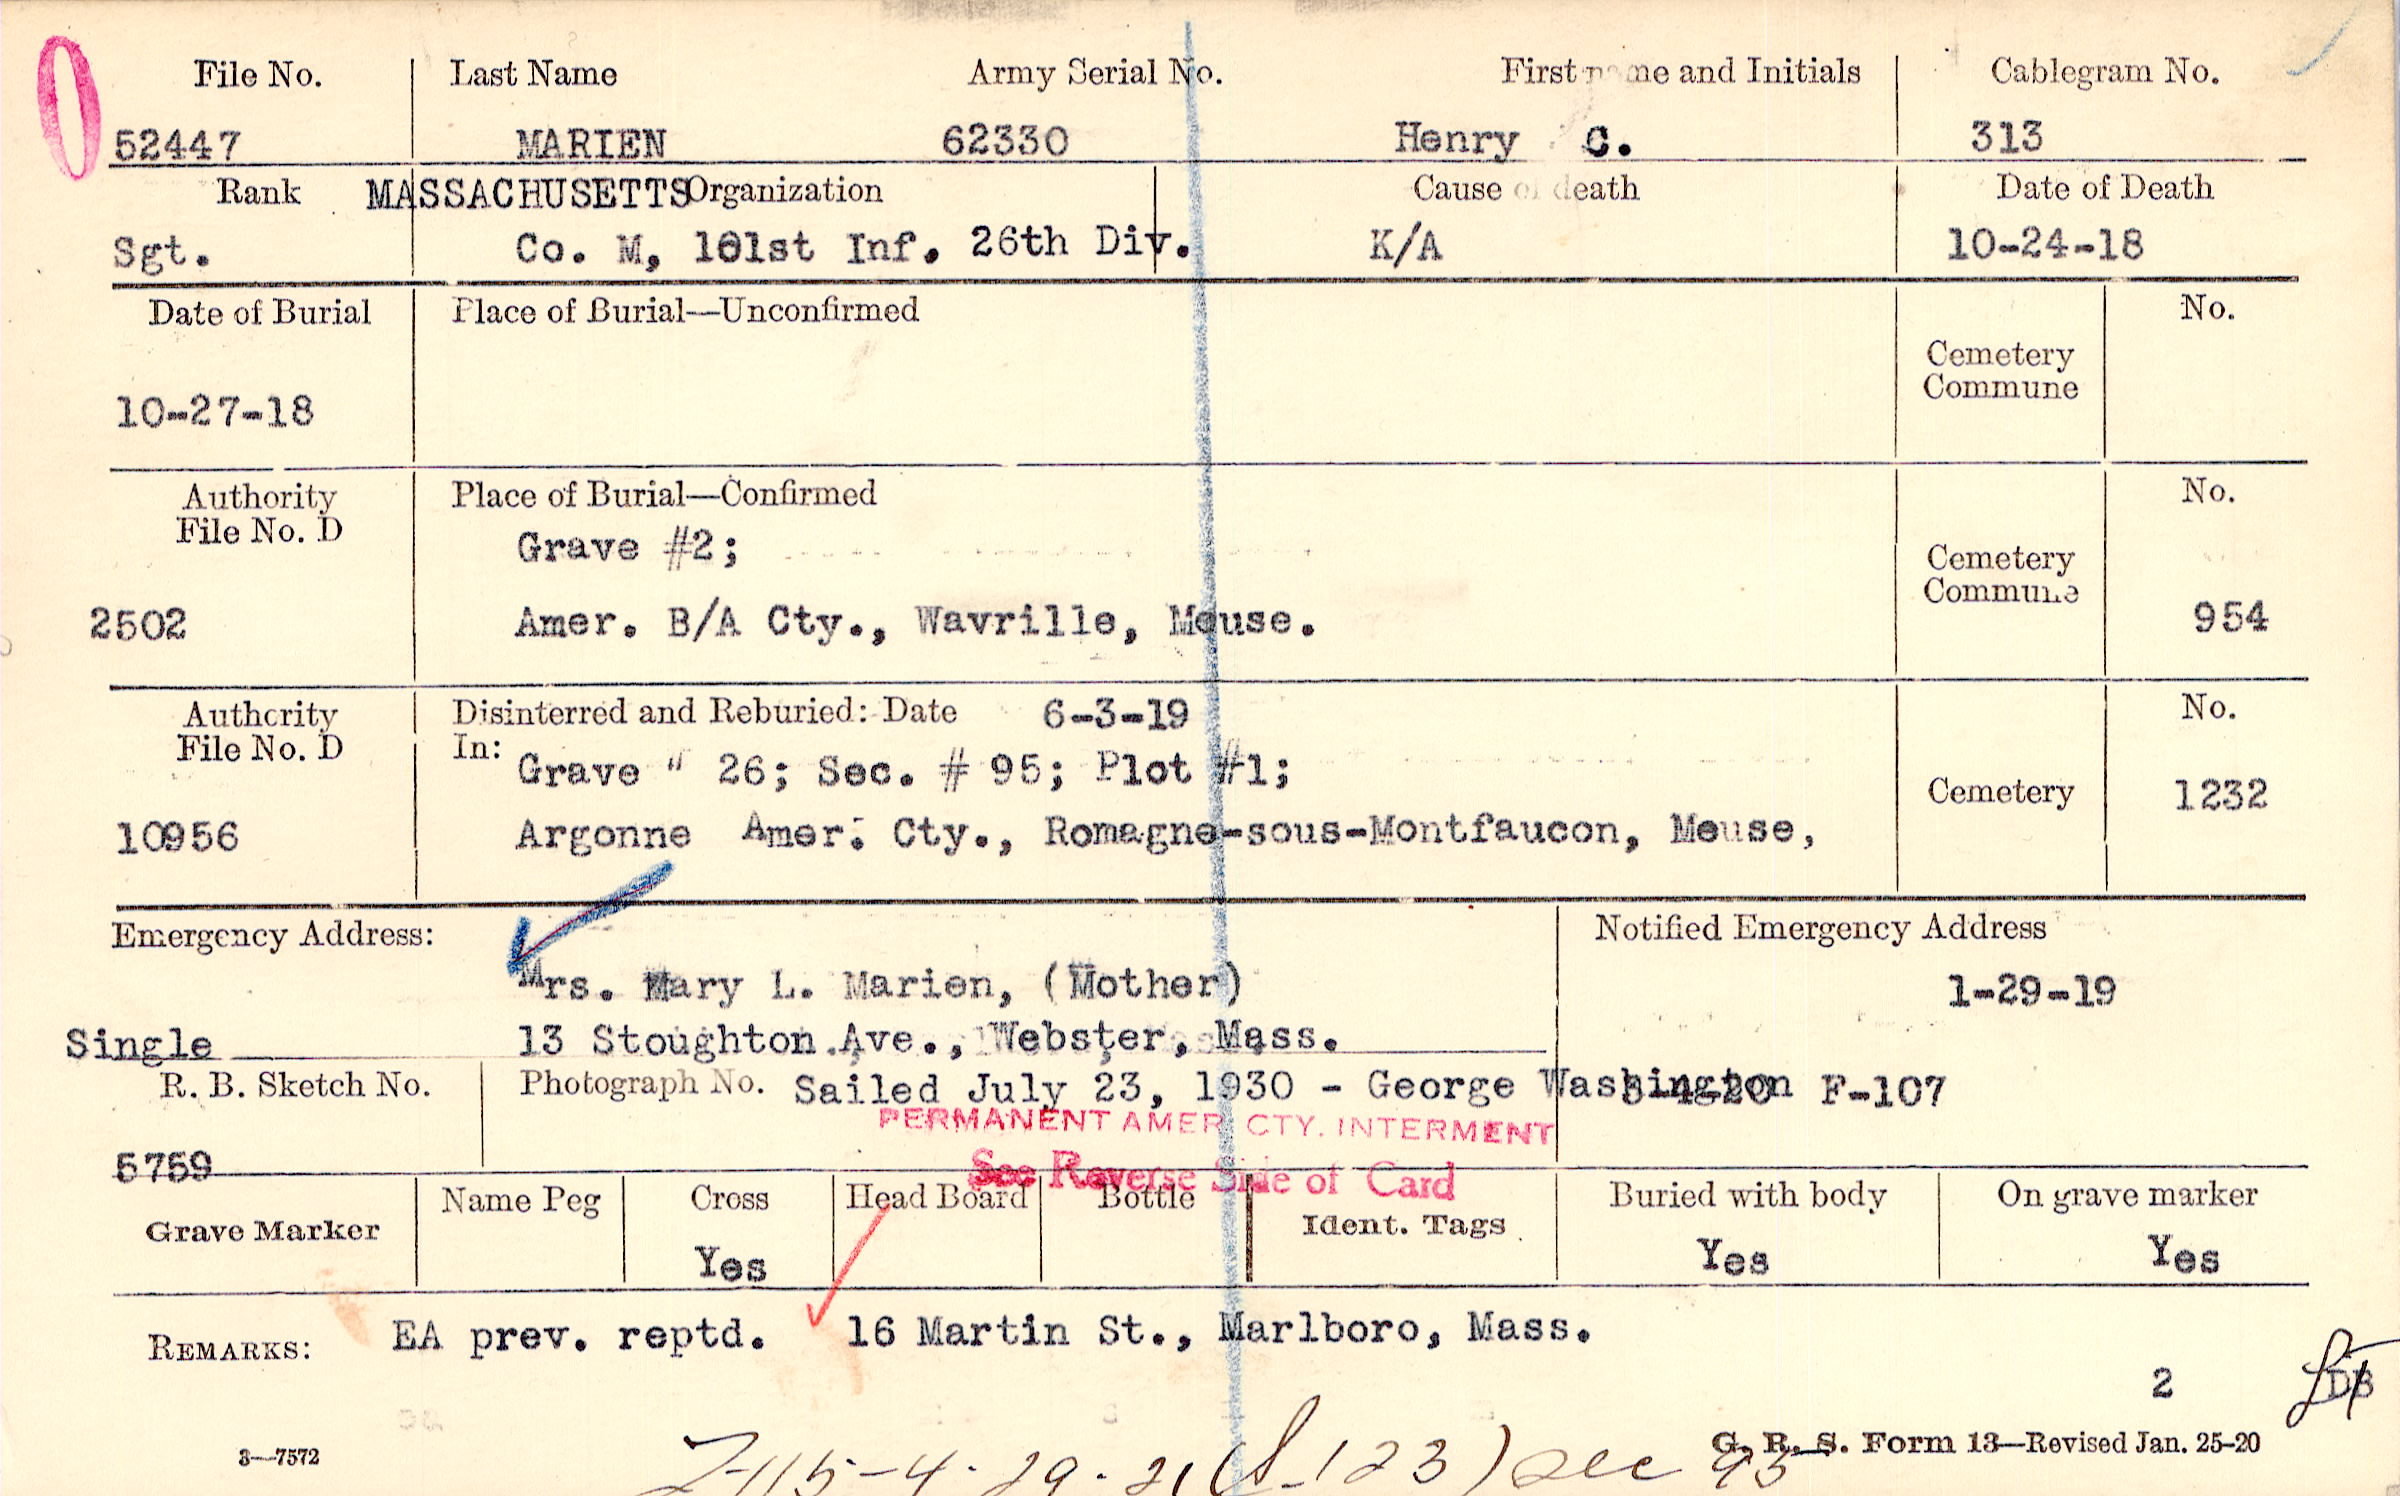 File No. Last Name Army Serial No. First name and Initials Cablegram No.
52447 MARIEN 62330 Henry C. 313
Rank MASSACHUSETTS Organization Cause of death Date of Death
Sgt. Co. M, 101st Inf. 26th Div. K/A 10-24-18
Date of Burial Place of Burial—Unconfirmed No.
Cemetery
Commune
10-27-18
Authority Place of Burial—Confirmed No.
File No. D
Grave #2;
Cemetery
Commune
2502 Amer. B/A Cty., Wavrille, Meuse. 954
Authority Disinterred and Reburied: Date 6-3-19 No.
File No. D In:
Grave " 26; Sec. # 95; Plot #1;
Cemetery 1232
10956 Argonne Amer. Cty., Romagne-sous-Montfaucon, Meuse,
Emergency Address: Notified Emergency Address
Mrs. Mary L. Marien, (Mother) 1-29-19
Single 13 Stoughton Ave., Webster, Mass.
R. B. Sketch No. Photograph No. Sailed July 23, 1930 - George Washington F-107
PERMANENT AMER. CTY. INTERMENT
5759 See Reverse Side of Card
Grave Marker Name Peg Cross Head Board Bottle Ident. Tags Buried with body On grave marker
Yes Yes Yes
REMARKS: EA prev. reptd. 16 Martin St., Marlboro, Mass.
2
3—7572 G. R. S. Form 13—Revised Jan. 25-20
4-29-21 (S-123) see 93